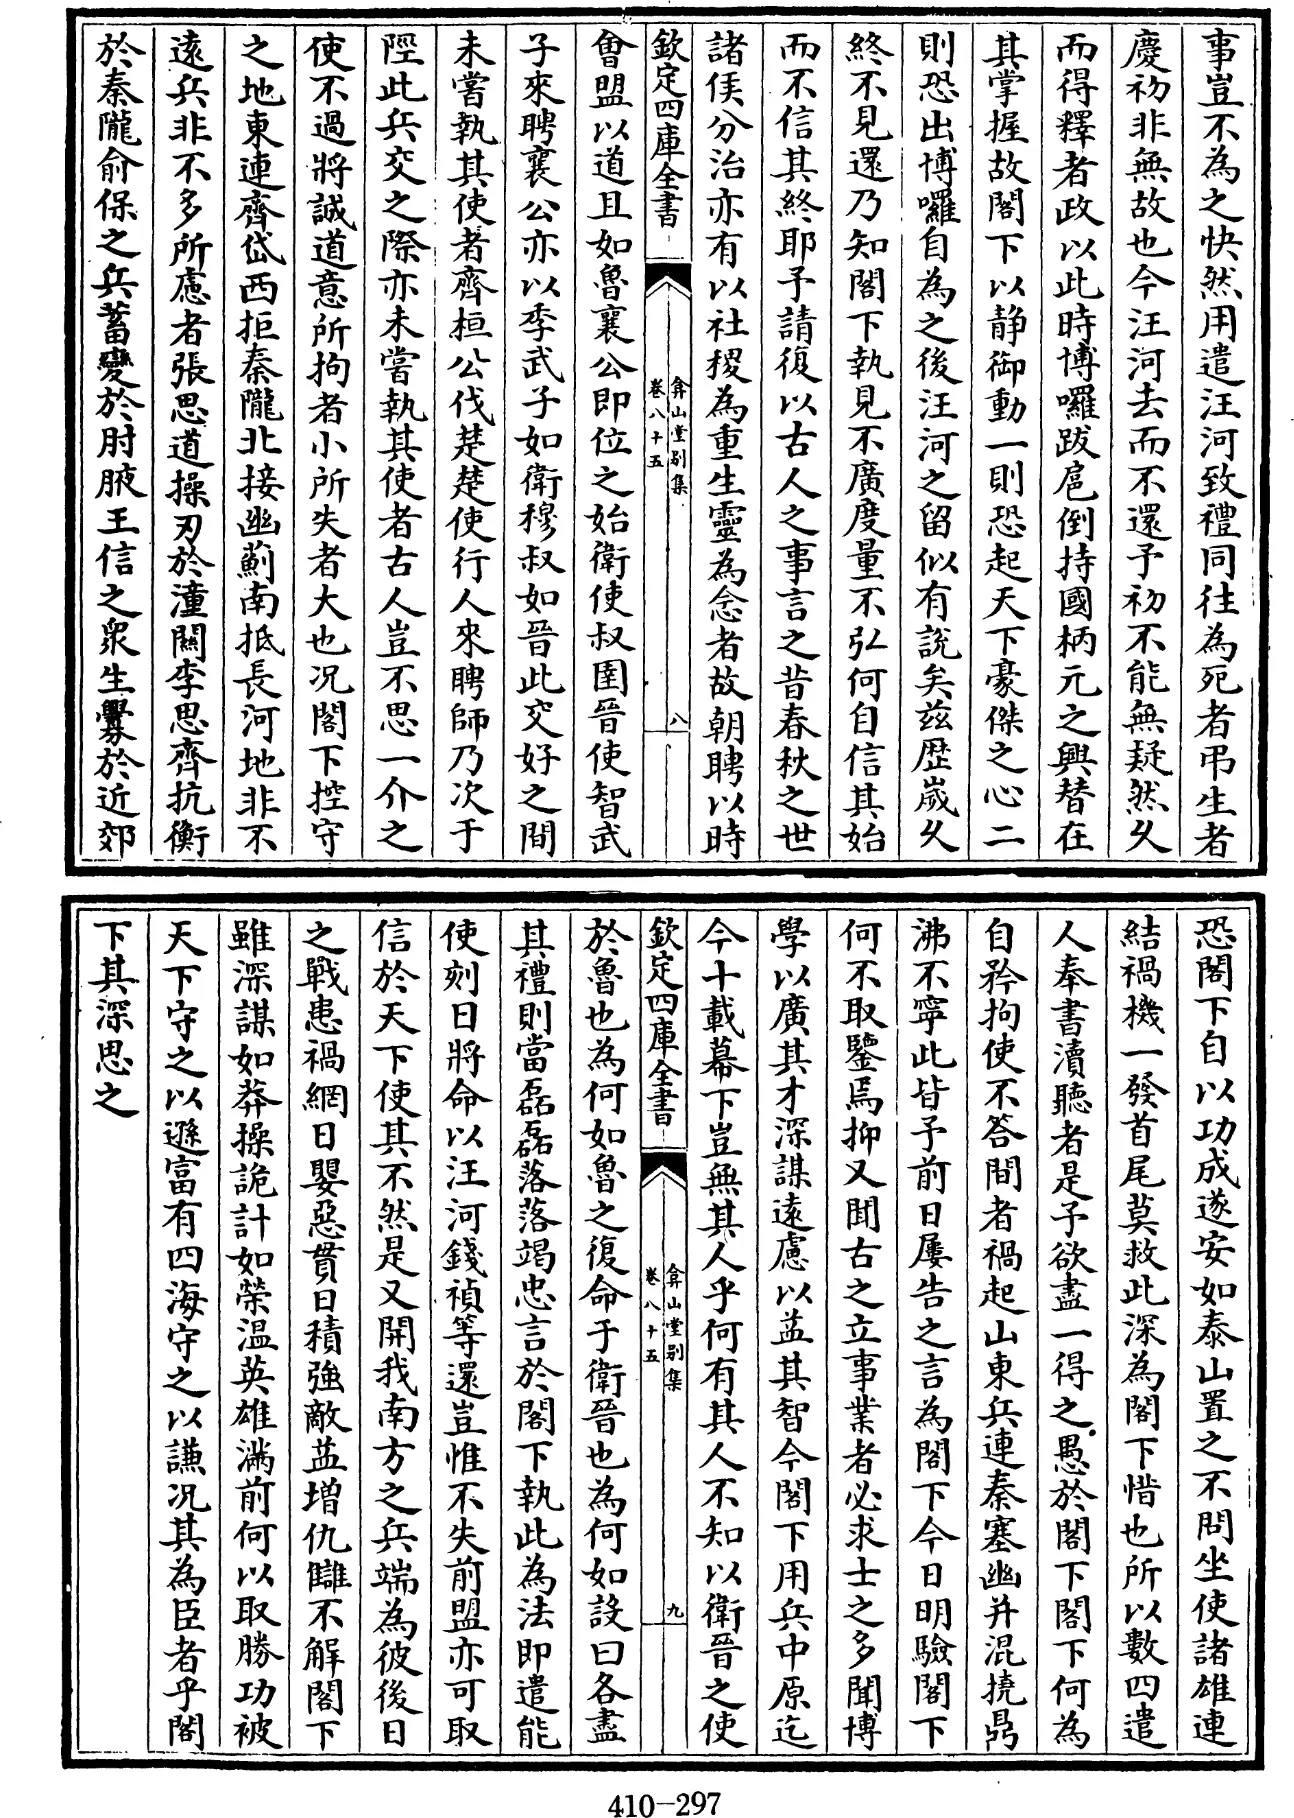 事豈不為之快然用遣汪河致禮同往為死者弔生者
慶初非無故也今汪河去而不還予初不能無疑然久
而得釋者政以此時博囉跋扈倒持國柄元之興替在
其掌握故閣下以静御動一則恐起天下豪傑之心二
則恐出博囉自為之後汪河之留似有說矣兹歴歲久
終不見還乃知閣下執見不廣度量不弘何自信其始
而不信其終耶予請復以古人之事言之昔春秋之世
諸侯分治亦有以社稷為重生靈為念者故朝聘以時
欽定四庫全書
弇山堂别集
卷八十五
八
會盟以道且如魯襄公即位之始衛使叔圉晉使智武
子來聘襄公亦以季武子如衛穆叔如晉此交好之間
未嘗執其使者齊桓公伐楚楚使行人來聘師乃次于
陘此兵交之際亦未嘗執其使者古人豈不思一介之
使不過將誠道意所拘者小所失者大也况閣下控守
之地東連齊岱西拒秦隴北接幽薊南抵長河地非不
逺兵非不多所慮者張思道操刃於潼關李思齊抗衡
於秦隴俞保之兵蓄變於肘腋王信之衆生釁於近郊
恐閣下自以功成遂安如泰山置之不問坐使諸雄連
結禍機一發首尾莫救此深為閣下惜也所以數四遣
人奉書瀆聽者是予欲盡一得之愚於閣下閣下何為
自矜拘使不答間者禍起山東兵連秦塞幽并混撓鼎
沸不寧此皆予前日屢告之言為閣下今日明驗閣下
何不取鑒焉抑又聞古之立事業者必求士之多聞博
學以廣其才深謀逺慮以益其智今閣下用兵中原迄
今十載幕下豈無其人乎何有其人不知以衛晉之使
欽定四庫全書
弇山堂别集
卷八十五
九
於魯也為何如魯之復命于衛晉也為何如設曰各盡
其禮則當磊磊落落竭忠言於閣下執此為法即遣能
使刻日將命以汪河錢禎等還豈惟不失前盟亦可取
信於天下使其不然是又開我南方之兵端為彼後日
之戰患禍網日嬰惡貫日積強敵益增仇讎不解閣下
雖深謀如莽操詭計如榮温英雄滿前何以取勝功被
天下守之以遜富有四海守之以謙况其為臣者乎閣
下其深思之
410-297